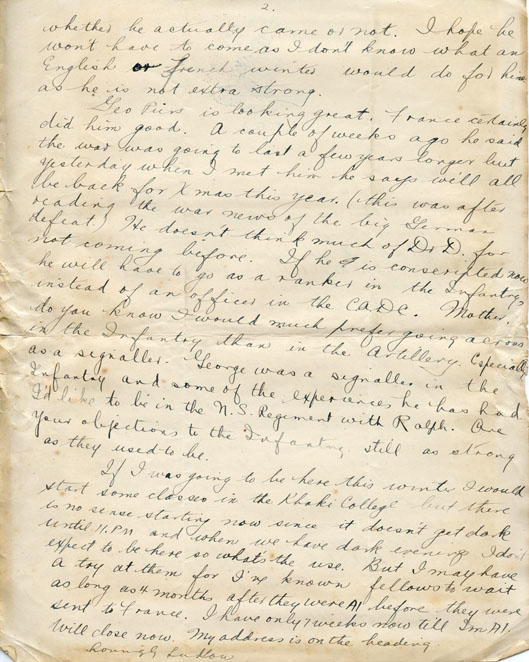 2.
whether he actually came or not. I hope he
wont have to come as I dont know what an
English or French winter would do for him
as he is not extra strong.
Geo is looking great. France certainly
did him good. A couple of weeks ago he said
the war was going to last a few years longer but
yesterday when I met him he says will all
be back for Xmas this year. (this was after
reading the war news of the big German
defeat.) He doesn't think much of Dr D. for
not coming before. If he is conscripted now
he will have to go as a ranker in the Infantry
instead of an officer in the C.A.D.C. Mother,
do you know I would much prefer going across
in the Infantry than in the Artillery. Especially
as a signaller. George was a signaller in the
Infantry and some of the experiences he has had
I'd like to be in the N.S. Regiment with Ralph. Are
your objections to the Infantry still as strong
as they used to be.
If I was going to be here this winter I would
start some classes in the Khaki College but there
is no sense starting now since it doesn't get dark
until 11.P.M and when we have dark evenings I don't
expect to be here so whats the use. But I may have
a try at them for I've known fellows to wait
as long as 4 months after they were A1 before they were
sent to France. I have only 7 weeks now till I'm A1.
Will close now. My address is on the heading.
Lovingly Ludlow